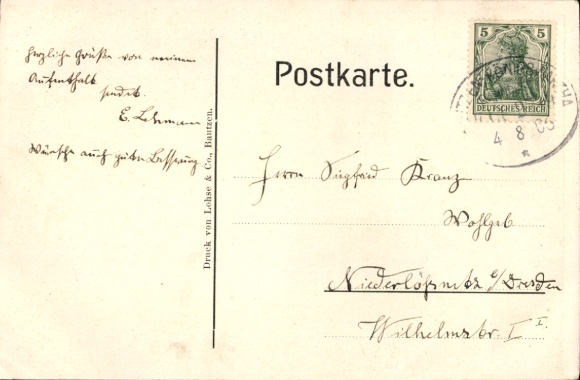 Herzliche Grüße von meinem
Aufenthalt
sendet
E. Lehmann
Wünsche auch gute Besserung
Druck von Lohse & Co., Bautzen.
Postkarte.
5 5
DEUTSCHES REICH
4 8 0
Herrn Siegfried Kranz
Wohlgeb
Niederlößnitz b/Dresden
Wilhelmstr. I I